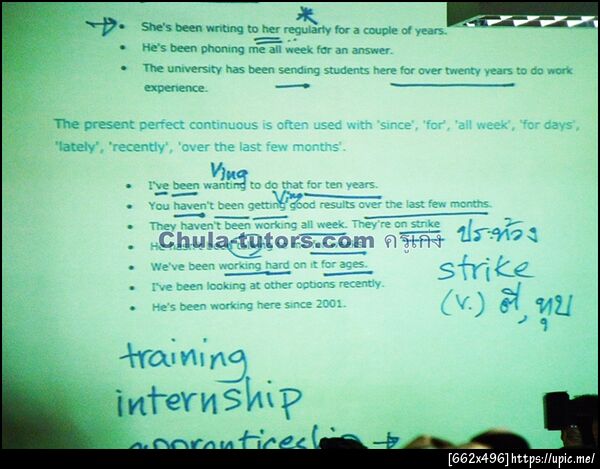 • She's been writing to her regularly for a couple of years.
• He's been phoning me all week for an answer.
• The university has been sending students here for over twenty years to do work
experience.
The present perfect continuous is often used with 'since', 'for', 'all week', 'for days',
'lately', 'recently', 'over the last few months'.
Ving
• I've been wanting to do that for ten years.
Ving
• You haven't been getting good results over the last few months.
• They haven't been working all week. They're on strike
ประท้วง
Chula-tutors.com ครูเกง
• We've been working hard on it for ages.
strike
• I've been looking at other options recently.
(v.) ตี, ทุบ
• He's been working here since 2001.
training
internship
apprenticeship →
[662x496]https://upic.me/